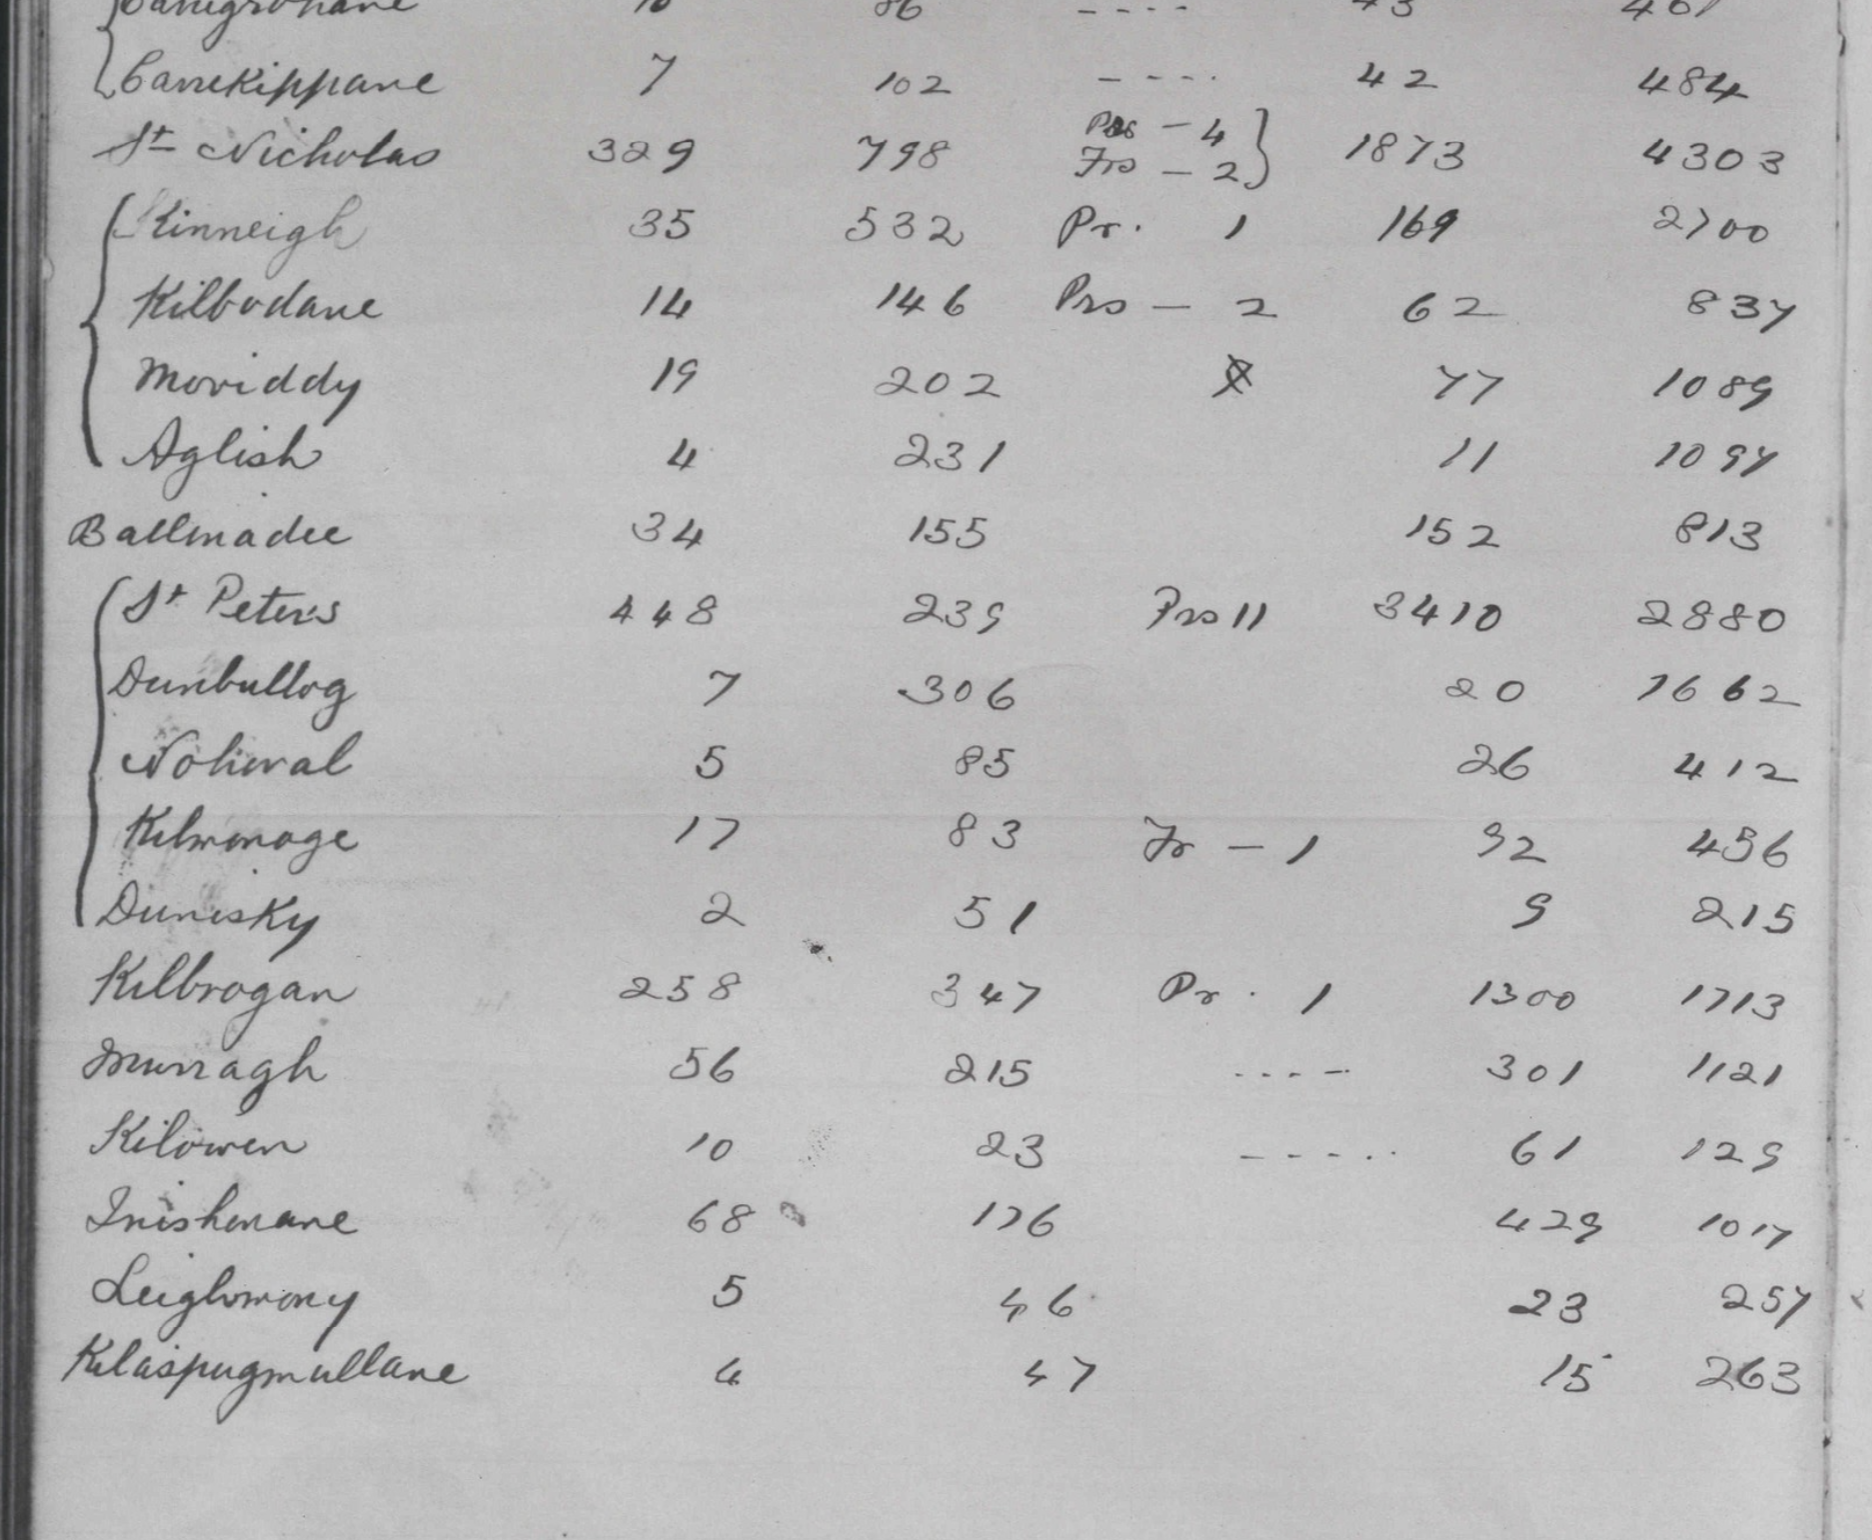 Carrigrohane 10 86 ---- 43 461
Carrekippane 7 102 ---- 42 484
St Nicholas 329 798 Prs - 4 Frs - 2 } 1873 4303
Kinneigh 35 532 Pr. 1 169 2700
Kilbodane 14 146 Prs - 2 62 837
Moviddy 19 202 77 1089
Aglish 4 231 11 1097
Ballmadee 34 155 152 813
St Peter's 448 239 Frs 11 3410 2880
Dunbullog 7 306 20 1662
Nohoval 5 85 26 412
Kilmonoge 17 83 Fr - 1 92 456
Dunisky 2 51 9 215
Kilbrogan 258 347 Pr. 1 1300 1713
Murragh 56 215 ---- 301 1121
Kilowen 10 23 ----- 61 129
Inishonane 68 176 429 1017
Leighmony 5 46 23 257
Kilaspugmullane 4 47 15 263